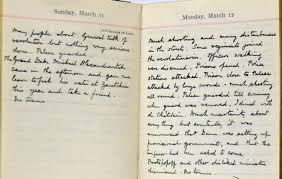 Sunday, March 11
Many people about. General talk of
revolution but nothing very serious
done. Palace guarded.
The Grand Duke Michael Alexandrovitch
came in the afternoon and gave me
leave to fish his water at Gatchina
this year and take a friend.
No trams.
Monday, March 12
Much shooting and many disturbances
in the street. Some regiments joined
the revolutionaries. Officers walking
were disarmed. Prisons opened. Police
stations attacked. Prison close to Palace
attacked by large crowds. Much shooting
all round. Palace guarded till evening
when guard was removed. I dined with
children. Much uncertainty about
everything but eventually it was
announced that Duma was setting up
provisional government, and that the
Emperor had been asked to come.
Protopopoff and other disliked ministers
dismissed. No trams.